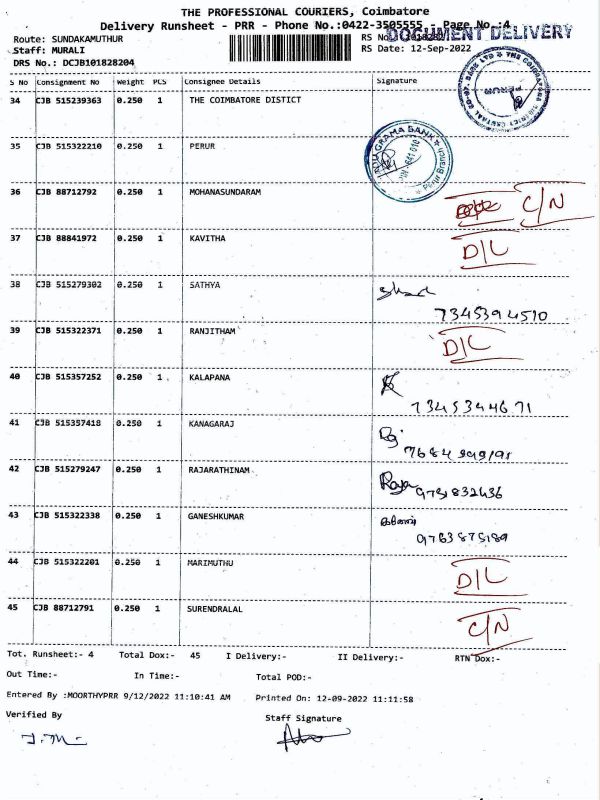 THE PROFESSIONAL COURIERS, Coimbatore
Delivery Runsheet - PRR - Phone No.:0422-3505555 - Page No.:4
DOCUMENT DELIVERY
Route: SUNDAKAMUTHUR
RS No
Staff: MURALI
RS Date: 12-Sep-2022
DRS No.: DCJB101828204
S No Consignment No Weight PCS Consignee Details Signature
34 CJB 515239363 0.250 1 THE COIMBATORE DISTICT
PERUR
35 CJB 515322210 0.250 1 PERUR
GRAMA BANK
641 010
Perur Branch
36 CJB 88712792 0.250 1 MOHANASUNDARAM C/N
37 CJB 88841972 0.250 1 KAVITHA D/L
38 CJB 515279302 0.250 1 SATHYA
7345394510
39 CJB 515322371 0.250 1 RANJITHAM D/L
40 CJB 515357252 0.250 1 KALAPANA
7345344671
41 CJB 515357418 0.250 1 KANAGARAJ
42 CJB 515279247 0.250 1 RAJARATHINAM Raja 9751832436
43 CJB 515322338 0.250 1 GANESHKUMAR
9763875189
44 CJB 515322201 0.250 1 MARIMUTHU D/L
45 CJB 88712791 0.250 1 SURENDRALAL C/N
Tot. Runsheet:- 4 Total Dox:- 45 I Delivery:- II Delivery:- RTN Dox:-
Out Time:- In Time:- Total POD:-
Entered By :MOORTHYPRR 9/12/2022 11:10:41 AM Printed On: 12-09-2022 11:11:58
Verified By Staff Signature